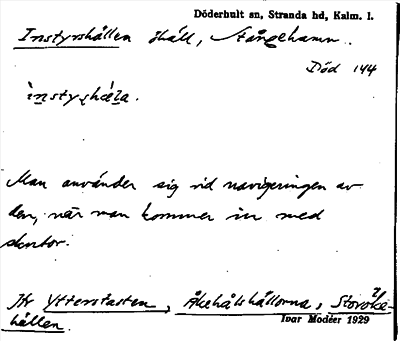 Döderhult sn, Stranda hd, Kalm. l.
Instyrshällen häll, Stångehamn.
Död 144
ìnstyshæ̀la.
Man använder sig vid navigeringen av
den, när man kommer in med
skutor.
Jfr Ytterstasten, Åkehålshällorna, Storöke-
hällen.
Ivar Modéer 1929